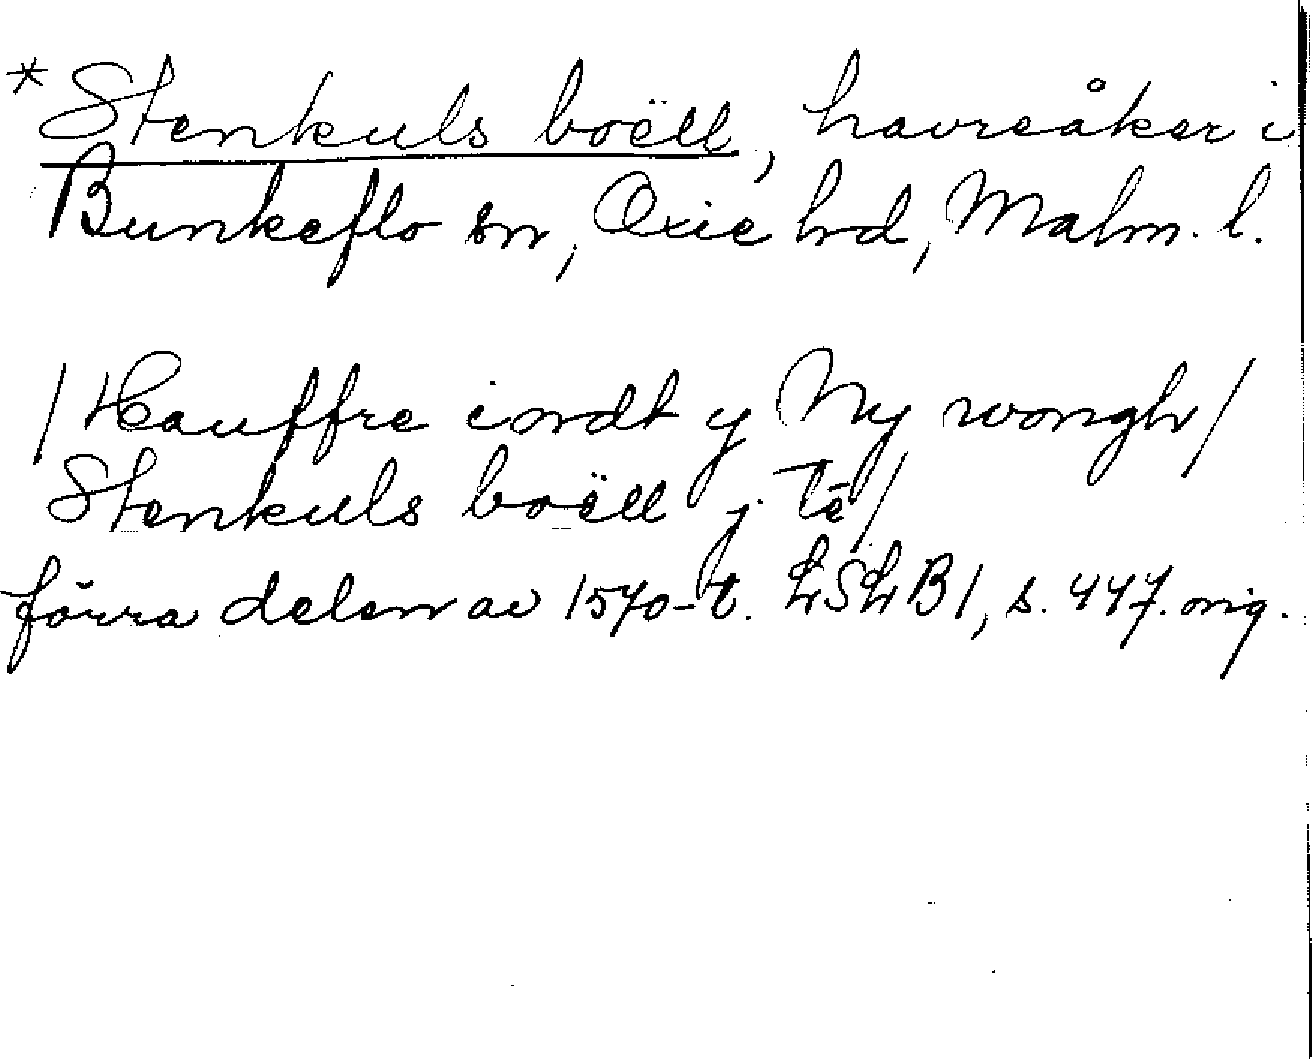 *Stenkuls boëll, havreåker i
Bunkeflo sn, Oxie hd, Malm. l.
/Hauffre iordt y Ny wongh/
Stenkuls boëll y tē/
förra delen av 1570-t. LSLB1, s. 447. orig.